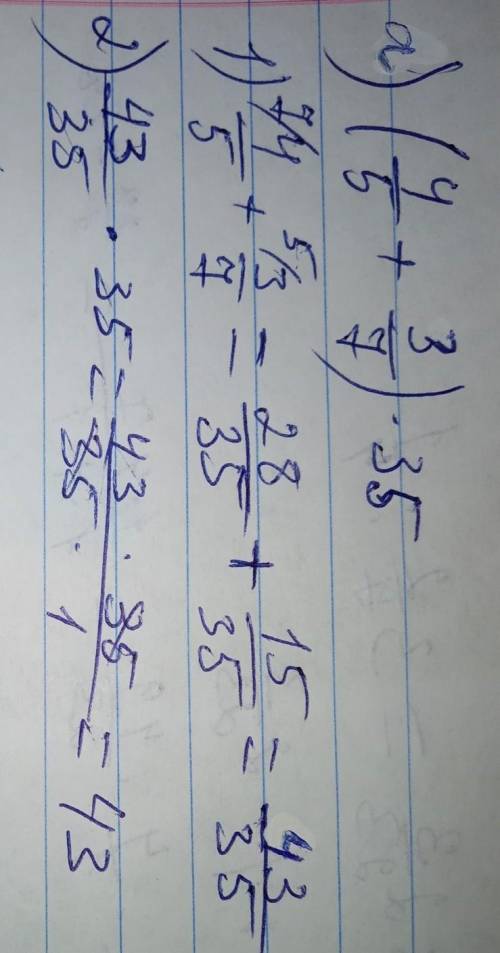 а) (4/5 + 3/7) · 35
1) 7/4/5 + 5/3/7 = 28/35 + 15/35 = 43/35
2) 43/35 · 35 = 43 · 35/35 · 1 = 43